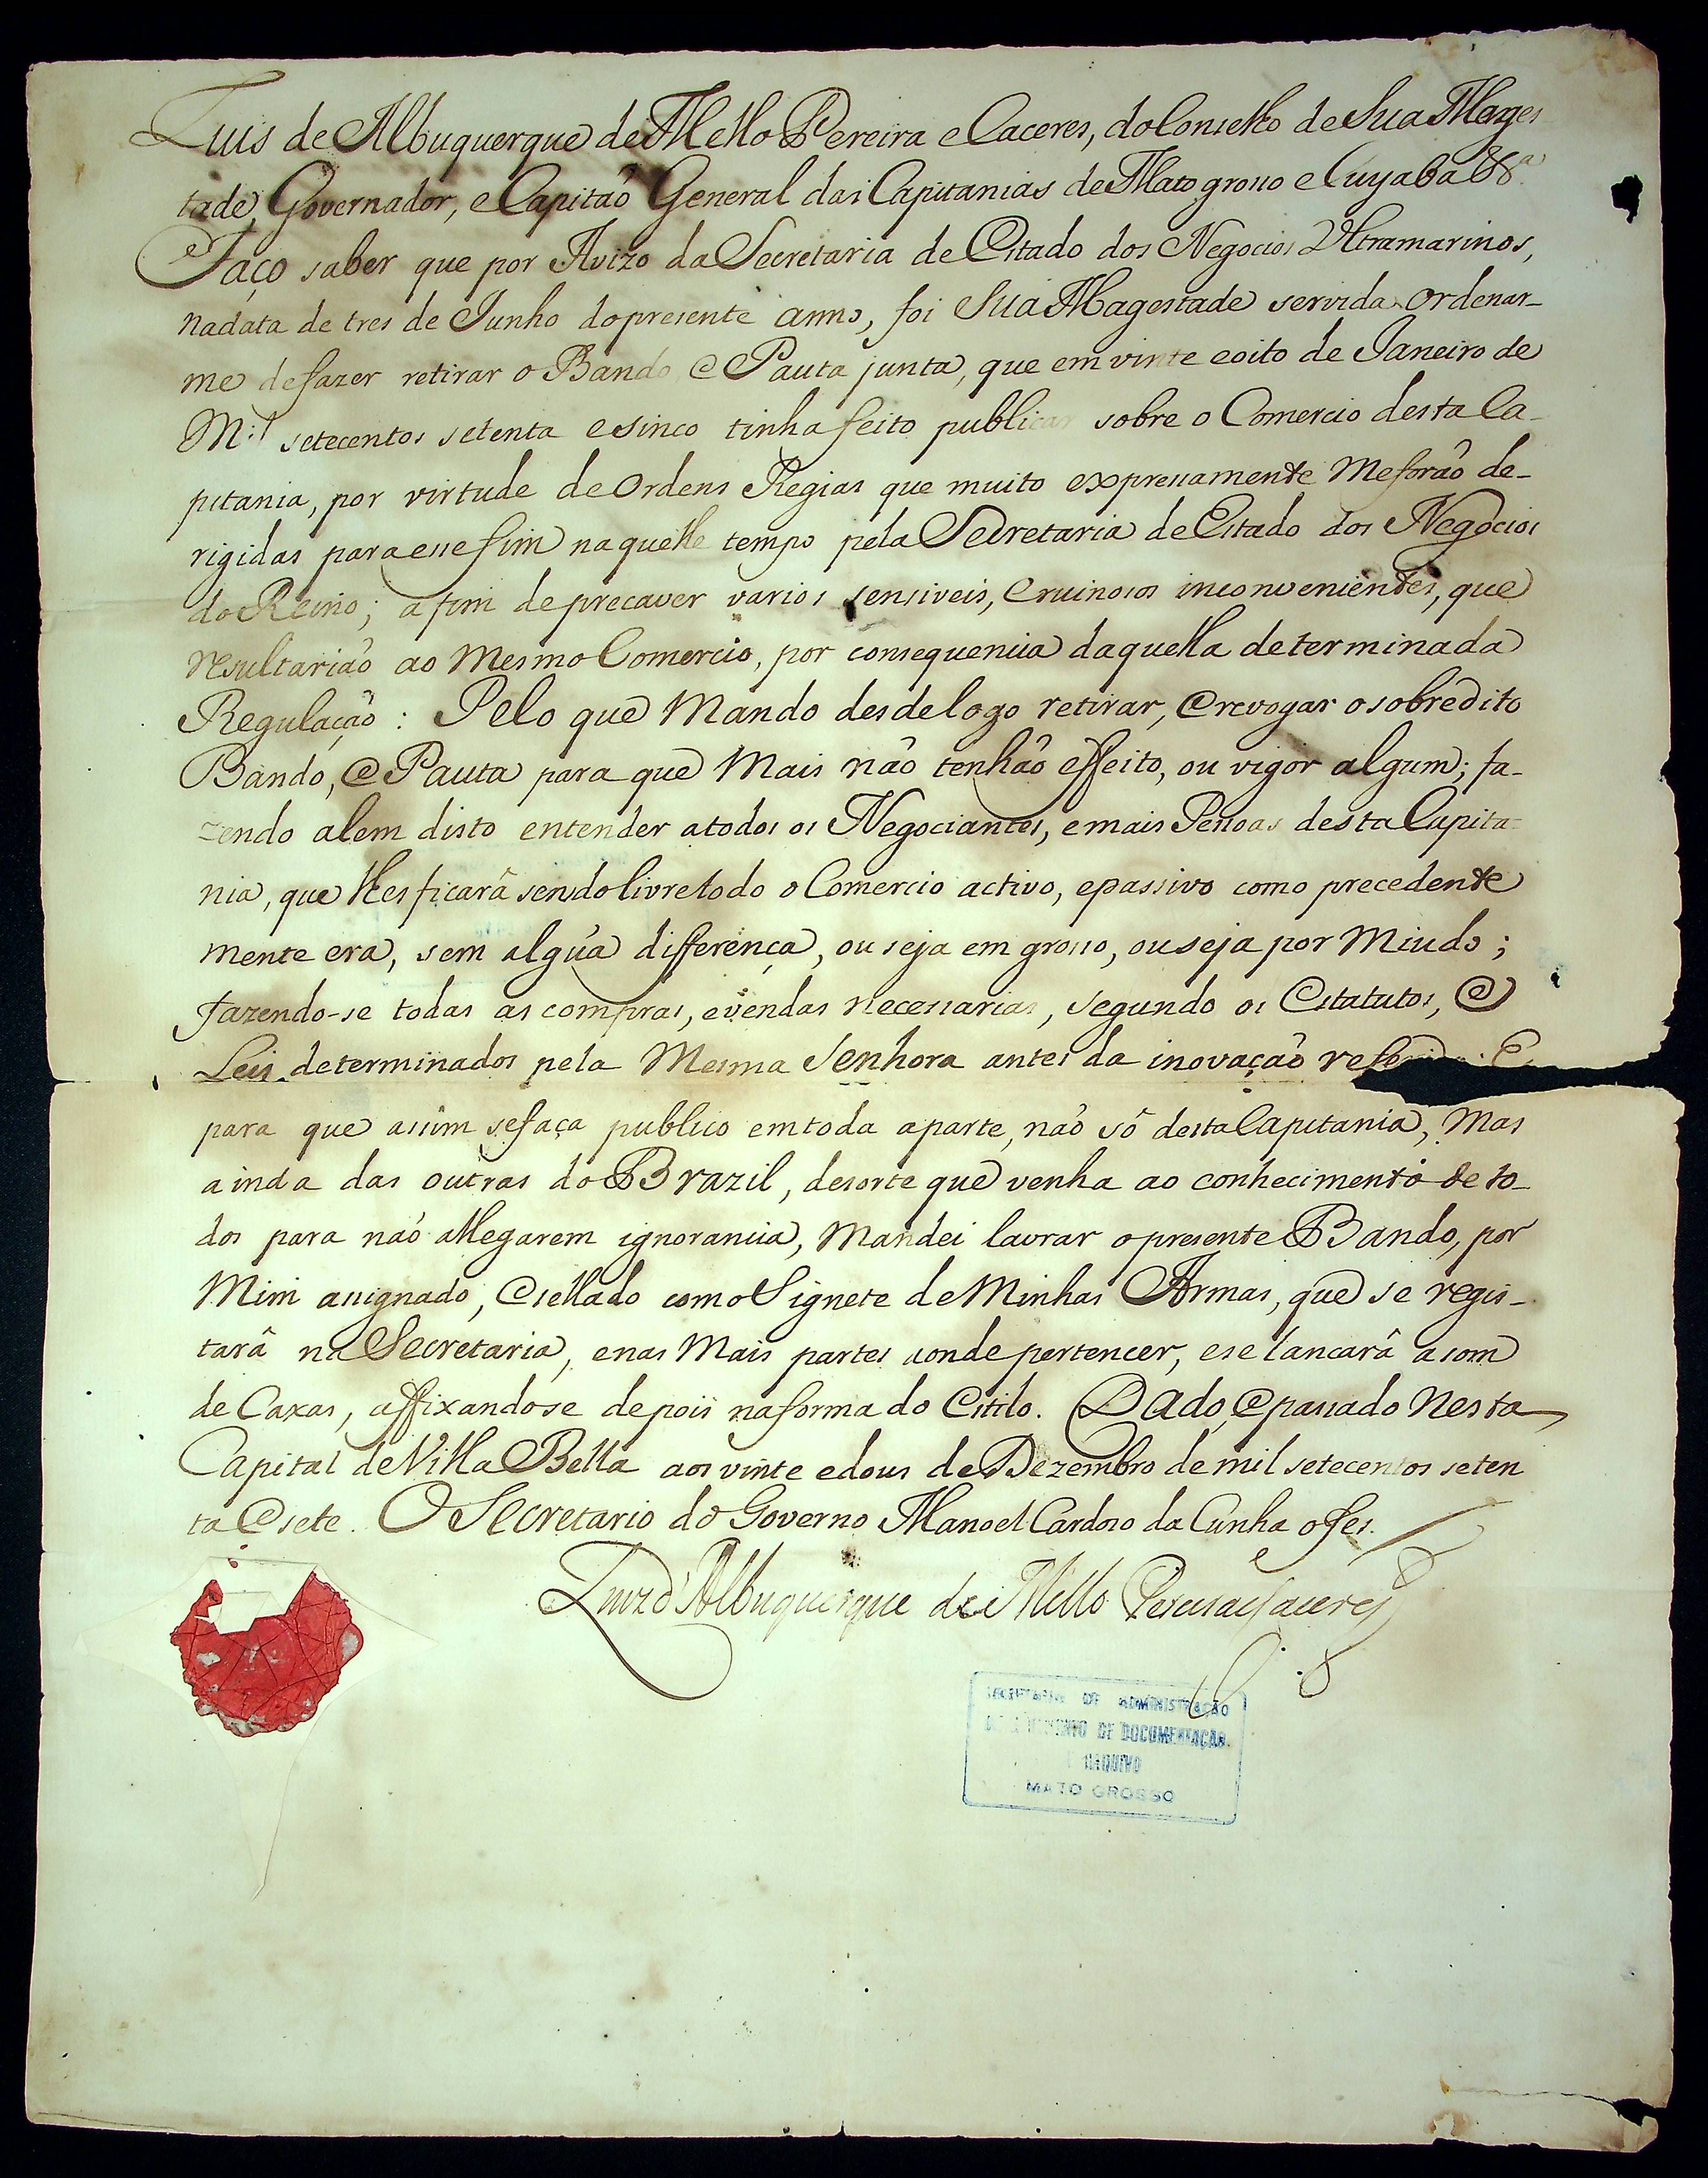 Luis de Albuquerque de Mello Pereira e Caceres, do Conselho de Sua Mages
tade, Governador, e Capitaõ General das Capitanias de Mato grosso e Cuyaba &ª
Faço saber que por Avizo da Secretaria de Estado dos Negocios Ultramarinos,
na data de tres de Junho do presente anno, foi Sua Magestade servida ordenar-
me de fazer retirar o Bando, e Pauta junta, que em vinte e oito de Janeiro de
Mil setecentos setenta e sinco tinha feito publicar sobre o Comercio desta Ca-
pitania, por virtude de Ordens Regias que muito expressamente me foraõ de-
rigidas para esse fim naquelle tempo pela Secretaria de Estado dos Negocios
do Reino; a fim de precaver varios sensiveis, e ruinosos inconvenientes, que
resultariaõ ao mesmo Comercio, por consequencia daquella determinada
Regulaçaõ: Pelo que Mando desde logo retirar, e revogar o sobredito
Bando, e Pauta para que mais naõ tenhaõ effeito, ou vigor algum; fa-
zendo alem disto entender a todos os Negociantes, e mais Pessoas desta Capita-
nia, que lhes ficarâ sendo livre todo o Comercio activo, e passivo como precedente
mente era, sem algũa differença, ou seja em grosso, ou seja por miudo;
fazendo-se todas as compras, e vendas necessarias, segundo os Estatutos, e
Leis determinados pela Mesma Senhora antes da inovaçaõ referida. E
para que assim se faça publico em toda a parte, naõ sô desta Capitania, mas
ainda das outras do Brazil, de sorte que venha ao conhecimento de to-
dos para naõ allegarem ignorancia, Mandei lavrar o presente Bando, por
Mim assignado, e sellado com o Signete de Minhas Armas, que se regis-
tarâ na Secretaria, e nas mais partes aonde pertencer, e se lancarâ a som
de Caxas, affixando-se depois na forma do Estilo. Dado, e passado nesta
Capital de Villa Bella aos vinte e dous de Dezembro de mil setecentos seten
ta e sete. O Secretario do Governo Manoel Cardoso da Cunha o fes.
Luiz d'Albuquerque de Mello Pereira e Caceres
SECRETARIA DE ADMINISTRAÇÃO
DEPARTAMENTO DE DOCUMENTAÇÃO
E ARQUIVO
MATO GROSSO